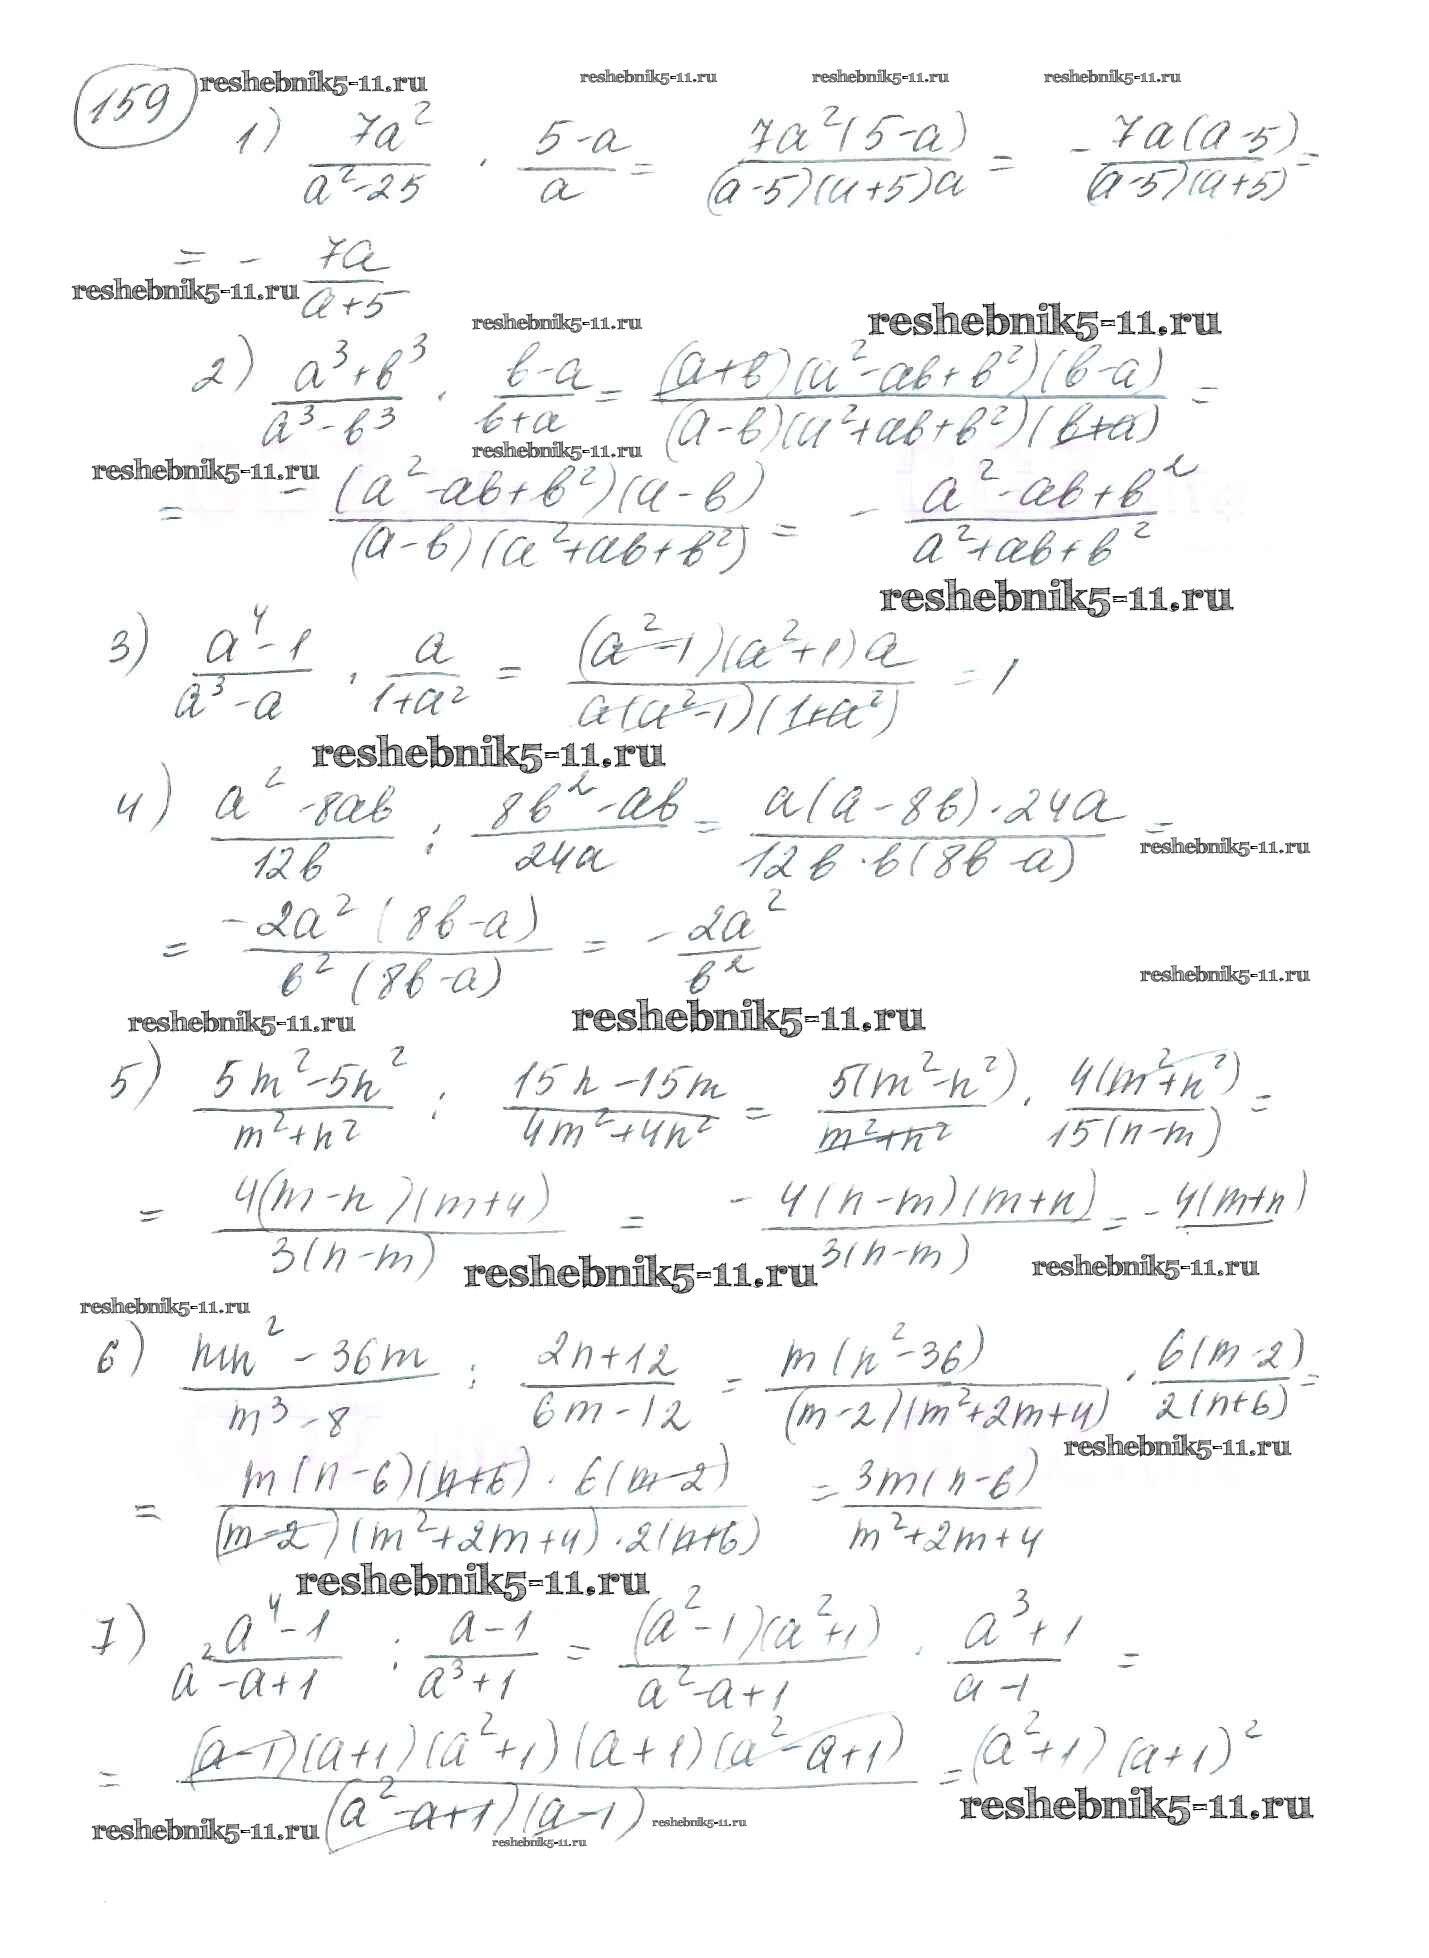 159 reshebnik5-11.ru reshebnik5-11.ru reshebnik5-11.ru reshebnik5-11.ru
1) 7a²/(a²-25) · (5-a)/a = 7a²(5-a)/((a-5)(a+5)a) = - 7a(a-5)/((a-5)(a+5)) =
= - 7a/(a+5)
reshebnik5-11.ru reshebnik5-11.ru reshebnik5-11.ru
2) (a³+b³)/(a³-b³) · (b-a)/(b+a) = (a+b)(a²-ab+b²)(b-a)/((a-b)(a²+ab+b²)(b+a)) =
reshebnik5-11.ru reshebnik5-11.ru
= - (a²-ab+b²)(a-b)/((a-b)(a²+ab+b²)) = - (a²-ab+b²)/(a²+ab+b²)
reshebnik5-11.ru
3) (a⁴-1)/(a³-a) · a/(1+a²) = (a²-1)(a²+1)a/(a(a²-1)(1+a²)) = 1
reshebnik5-11.ru
4) (a²-8ab)/12b : (8b²-ab)/24a = a(a-8b)·24a/(12b·b(8b-a)) =
reshebnik5-11.ru
= -2a²(8b-a)/(b²(8b-a)) = - 2a²/b²
reshebnik5-11.ru
reshebnik5-11.ru reshebnik5-11.ru
5) (5m²-5n²)/(m²+n²) : (15n-15m)/(4m²+4n²) = 5(m²-n²)/(m²+n²) · 4(m²+n²)/(15(n-m)) =
= 4(m-n)(m+4)/(3(n-m)) = - 4(n-m)(m+n)/(3(n-m)) = - 4(m+n)
reshebnik5-11.ru reshebnik5-11.ru
reshebnik5-11.ru
6) (mn²-36m)/(m³-8) : (2n+12)/(6m-12) = m(n²-36)/((m-2)(m²+2m+4)) · 6(m-2)/(2(n+6)) =
reshebnik5-11.ru
= m(n-6)(n+6)·6(m-2)/((m-2)(m²+2m+4)·2(n+6)) = 3m(n-6)/(m²+2m+4)
reshebnik5-11.ru
7) (a⁴-1)/(a²-a+1) : (a-1)/(a³+1) = (a²-1)(a²+1)/(a²-a+1) · (a³+1)/(a-1) =
= (a-1)(a+1)(a²+1)(a+1)(a²-a+1)/((a²-a+1)(a-1)) = (a²+1)(a+1)²
reshebnik5-11.ru reshebnik5-11.ru reshebnik5-11.ru
reshebnik5-11.ru